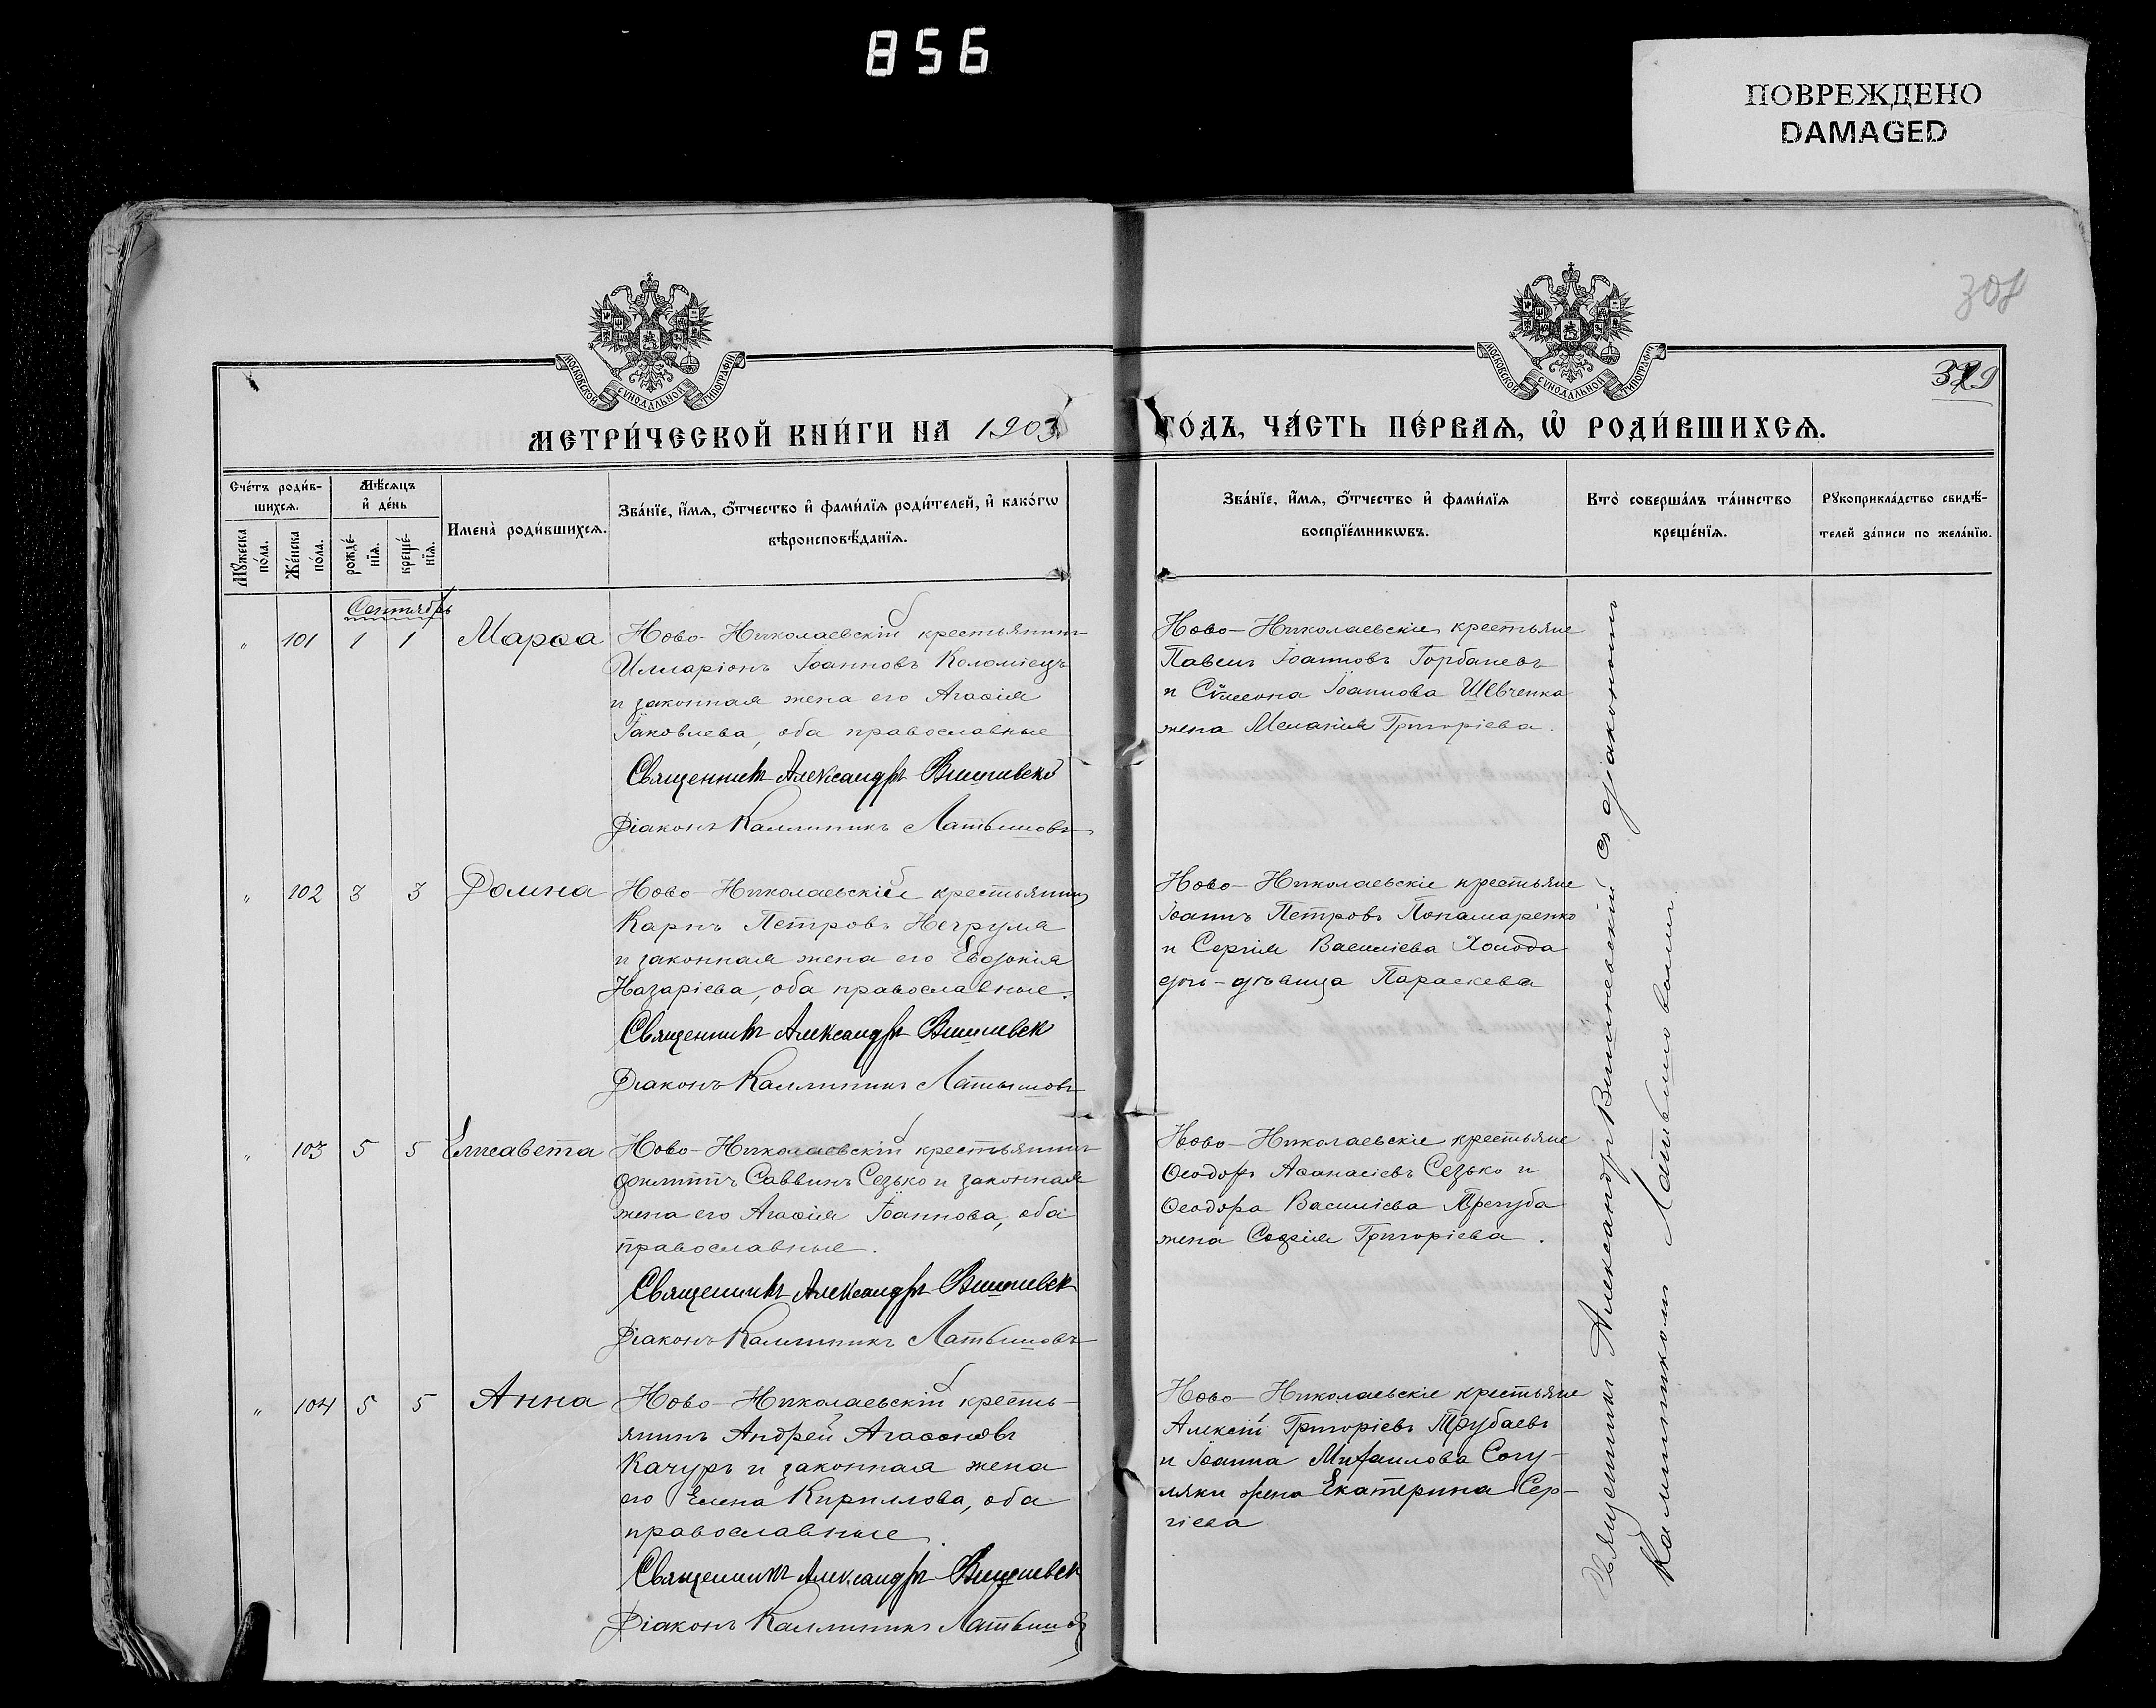 856
ПОВРЕЖДЕНО
DAMAGED
307
329
МОСКОВСКОЙ СѴНОДАЛЬНОЙ ТИПОГРАФІИ
МОСКОВСКОЙ СѴНОДАЛЬНОЙ ТИПОГРАФІИ
МЕТРИ́ЧЕСКОЙ КНИ́ГИ НА 1903
ГО́ДЪ, ЧА́СТЬ ПЕ́РВАѦ, Ѡ҆ РОДИ́ВШИХСѦ.
Сче́тъ роди́вшихсѧ.
Мꙋ́жеска по́ла.
Же́нска по́ла.
Мѣ́сѧцъ и҆ де́нь
рожде́нїѧ.
креще́нїѧ.
Имена̀ роди́вшихсѧ.
Зва́нїе, и҆́мѧ, ѻ҆́тчество и҆ фами́лїѧ роди́телей, и҆ како́гѡ
вѣроисповѣ́данїѧ.
Зва́нїе, и҆́мѧ, ѻ҆́тчество и҆ фами́лїѧ
воспрїе́мникѡвъ.
Кто̀ соверша́лъ та́инство
креще́нїѧ.
Рꙋкоприкла́дство свидѣ́-
телей за́писи по жела́нїю.
Сентябрь
" 101 1 1 Марѳа
Ново-Николаевскій крестьянинъ
Илларіонъ Іоанновъ Коломіецъ
и законная жена его Агаѳія
Іаковлева, оба православные
Священникъ Александръ Вишневскій
Діаконъ Каллиникъ Латышовъ
Ново-Николаевскіе крестьяне
Павелъ Іоанновъ Горбаневъ
и Сѵмеона Іоаннова Шевченка
жена Меланія Григоріева.
" 102 3 3 Домна
Ново-Николаевскій крестьянинъ
Карпъ Петровъ Негруля
и законная жена его Евдокія
Назаріева, оба православные.
Священникъ Александръ Вишневск
Діаконъ Каллиникъ Латышовъ
Ново-Николаевскіе крестьяне
Іоаннъ Петровъ Понамаренко
и Сергія Василіева Холода
дочь-дѣвица Параскева
" 103 5 5 Елисавета
Ново-Николаевскій крестьянинъ
Филиппъ Саввинъ Сезько и законная
жена его Агаѳія Іоаннова, оба
православные.
Священникъ Александръ Вишневск
Діаконъ Каллиникъ Латышовъ
Ново-Николаевскіе крестьяне
Ѳеодоръ Аѳанасіевъ Сезько и
Ѳеодора Василіева Трегуба
жена Софія Григоріева.
" 104 5 5 Анна
Ново-Николаевскій кресть-
янинъ Андрей Агаѳоновъ
Качуръ и законная жена
его Елена Кириллова, оба
православные.
Священникъ Александръ Вишневск
Діаконъ Каллиникъ Латышовъ
Ново-Николаевскіе крестьяне
Алексій Григоріевъ Трубаевъ
и Іоанна Михаилова Согу-
ляки жена Екатерина Сер-
гіева
Священникъ Александръ Вишневскій съ діакономъ
Каллиникомъ Латышовымъ.